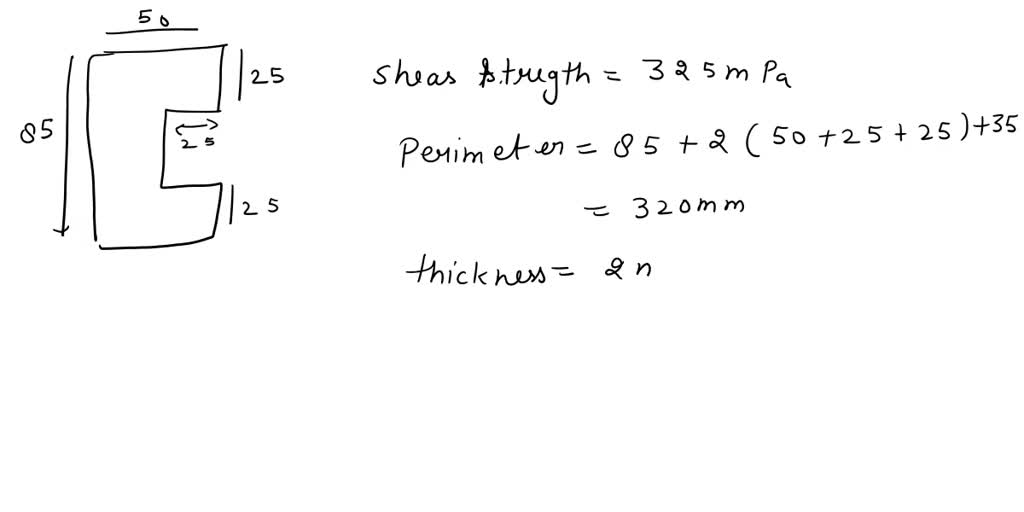 50
25
85
25
25
Sheas strugth = 325 m Pa
Perimeter = 85 + 2 ( 50 + 25 + 25 ) + 35
= 320 mm
thickness = 2 n